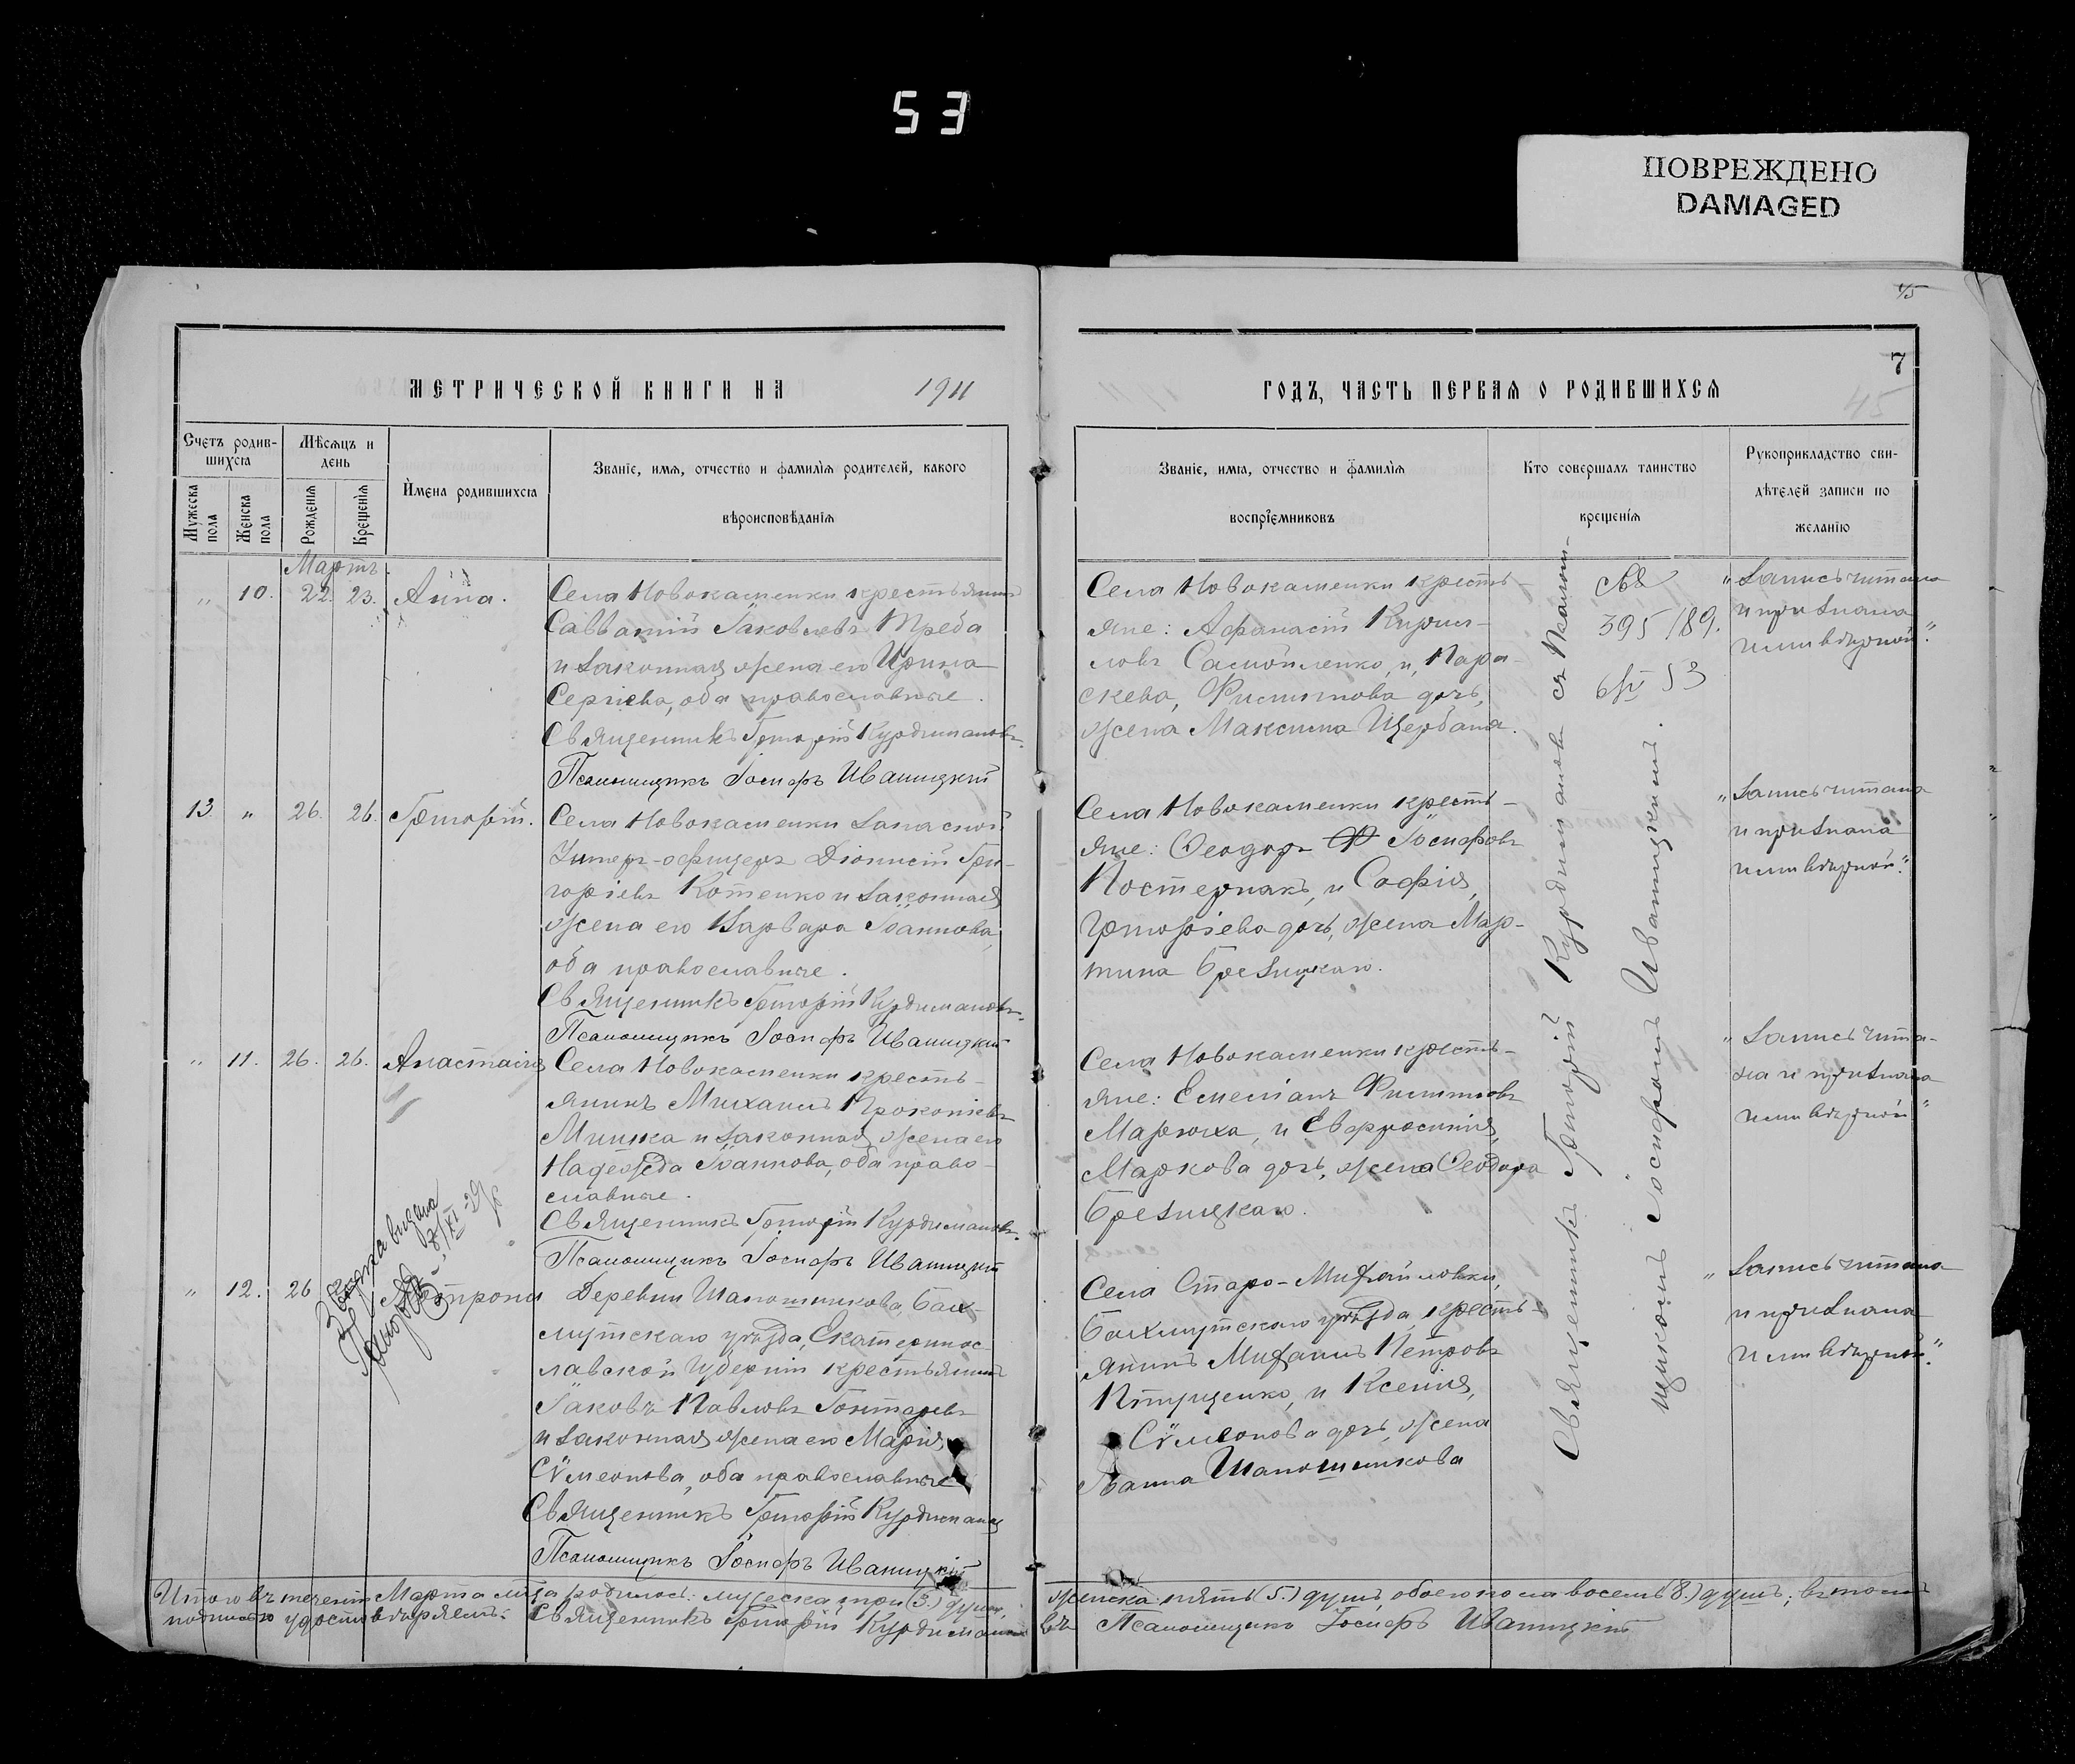 53
ПОВРЕЖДЕНО
DAMAGED
45
7
МЕТРИЧЕСКОЙ КНИГИ НА 1911
ГОДЪ, ЧАСТЬ ПЕРВАЯ О РОДИВШИХСЯ
45
Счетъ родив-
шихся
Мужеска пола
Женска пола
Мѣсяцъ и
день
Рожденія
Крещенія
Имена родившихся
Званіе, имя, отчество и фамилія родителей, какого
вѣроисповѣданія
Званіе, имя, отчество и фамилія
воспріемниковъ
Кто совершалъ таинство
крещенія
Рукоприкладство сви-
дѣтелей записи по
желанію
Мартъ
„ 10. 22. 23. Анна.
Села Новокаменки крестьянинъ
Савватій Іаковлевъ Треба
и законная жена его Ирина
Сергіева, оба православные.
Священникъ Григорій Курдимановъ.
Псаломщикъ Іосифъ Иваницкій
Села Новокаменки кресть-
яне: Афанасій Кирил-
ловъ Самойленко, и Пара-
скева, Филиппова дочь,
жена Максима Щербаня.
395/89.
53
„Запись читана
и признана
нами вѣрной."
13. „ 26. 26. Григорій.
Села Новокаменки запасной
Унтеръ-офицеръ Діонисій Гри-
горіевъ Котенко и законная
жена его Варвара Іоаннова,
оба православные.
Священникъ Григорій Курдимановъ.
Псаломщикъ Іосифъ Иваницкій
Села Новокаменки кресть-
яне: Ѳеодоръ Іосифовъ
Постернакъ, и Софія,
Григоріева дочь, жена Мар-
тина Брезицкаго.
„Запись читана
и признана
нами вѣрной."
„ 11. 26. 26. Анастасія
Села Новокаменки кресть-
янинъ Михаилъ Прокопіевъ
Минка и законная жена его
Надежда Іоаннова, оба право-
славные.
Священникъ Григорій Курдимановъ.
Псаломщикъ Іосифъ Иваницкій
Села Новокаменки кресть-
яне: Емеліанъ Филипповъ
Марюха, и Евфросинія,
Маркова дочь, жена Ѳеодора
Брезицкаго.
„Запись чита-
на и признана
нами вѣрной"
„ 12. 26
Деревни Шапошникова, Бах-
мутскаго уѣзда, Екатеринос-
лавской губерніи крестьянинъ
Іаковъ Павловъ Гонтаревъ
и законная жена его Марія
Сѵмеонова, оба православные
Священникъ Григорій Курдиманов
Псаломщикъ Іосифъ Иваницкій
Села Старо-Михайловки,
Бахмутскаго уѣзда, кресть-
янинъ Михаилъ Петровъ
Птущенко, и Ксенія,
Сѵмеонова дочь, жена
Іоанна Шапошникова
„Запись читана
и признана
нами вѣрной."
Священникъ Григорій Курдимановъ съ Псалом-
щикомъ Іосифомъ Иваницкимъ.
Итого въ теченіи Марта мѣс-ца родилось: мужеска три (3.) душъ, женска пять (5.) душъ, обоего пола восемь (8.) душъ; въ томъ
подписью удостовѣряемъ: Священникъ Григорій Курдимановъ Псаломщикъ Іосифъ Иваницкій